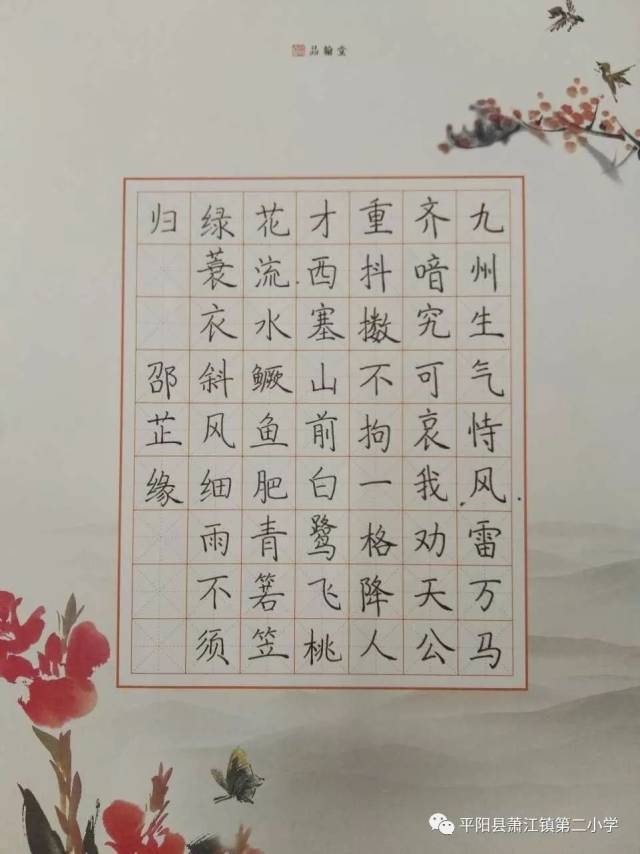 品翰堂
九州生气恃风雷万马
齐喑究可哀我劝天公
重抖擞不拘一格降人
才西塞山前白鹭飞桃
花流水鳜鱼肥青箬笠
绿蓑衣斜风细雨不须
归 邵芷缘
平阳县萧江镇第二小学